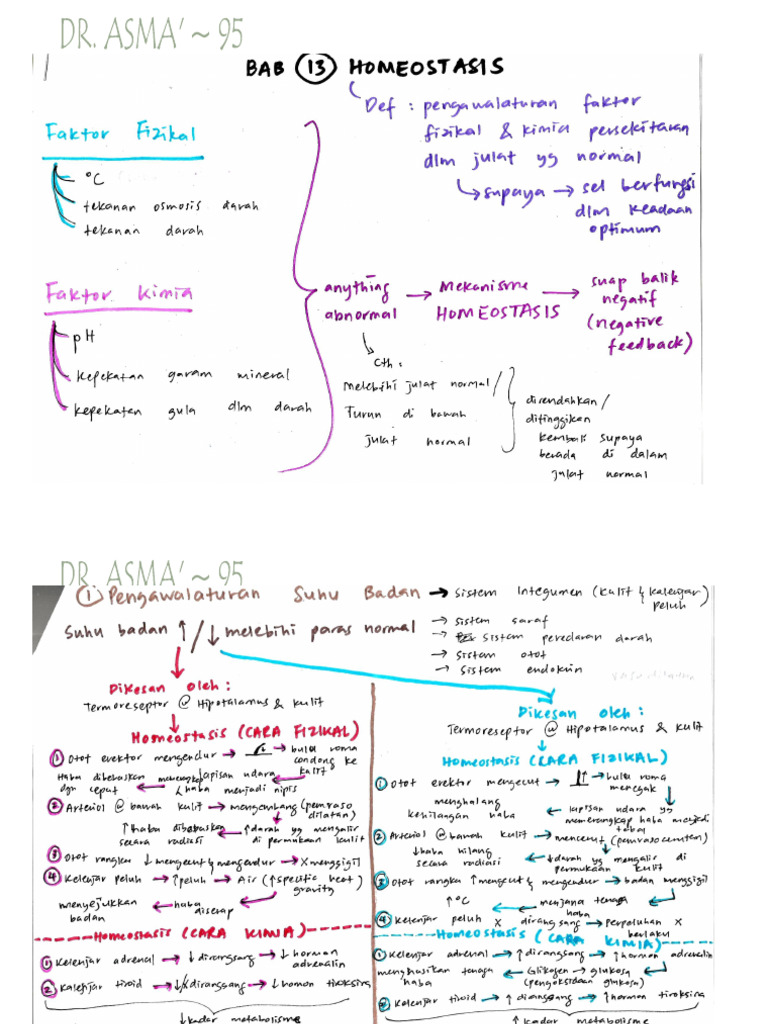 DR. ASMA' ~ 95
BAB 13 HOMEOSTASIS
Def : pengawalaturan faktor
fizikal & kimia persekitaran
dlm julat yg normal
↳ supaya → sel berfungsi
dlm keadaan
optimum
Faktor Fizikal
°C
tekanan osmosis darah
tekanan darah
Faktor Kimia
pH
kepekatan garam mineral
kepekatan gula dlm darah
anything
abnormal
→ Mekanisme
HOMEOSTASIS
→ suap balik
negatif
(negative
feedback)
Cth :
Melebihi julat normal /
Turun di bawah
julat normal
direndahkan /
ditinggikan
kembali supaya
berada di dalam
julat normal
DR. ASMA' ~ 95
1 Pengawalaturan Suhu Badan → Sistem Integumen (kulit & kelenjar
peluh)
→ sistem saraf
→ sistem peredaran darah
→ sistem otot
→ sistem endokrin
Suhu badan ↑ / ↓ melebihi paras normal
Dikesan oleh :
Termoreseptor @ Hipotalamus & kulit
Homeostasis (CARA FIZIKAL)
1 Otot erektor mengendur → bulu roma
condong ke
kulit
lapisan udara
menjadi nipis
Haba dibebaskan
dgn cepat
2 Arteriol @ bawah kulit → mengembang (pemvaso
dilatan)
↑ darah yg mengalir
di permukaan kulit
↑ haba dibebaskan
secara radiasi
3 Otot rangka ↓ mengecut & mengendur → x menggigil
4 Kelenjar peluh → ↑ peluh → Air (↑ specific heat)
gravity
haba
diserap
menyejukkan
badan
Homeostasis (CARA KIMIA)
1 Kelenjar adrenal → ↓ dirangsang → ↓ hormon
adrenalin
2 Kelenjar tiroid → ↓/x dirangsang → ↓ hormon tiroksina
↓ kadar metabolisme
Dikesan oleh :
Termoreseptor @ Hipotalamus & kulit
Homeostasis (CARA FIZIKAL)
1 Otot erektor mengecut → bulu roma
menegak
lapisan udara yg
memerangkap haba menjadi
tebal
menghalang
kehilangan haba
2 Arteriol @ bawah kulit → mencerut (pemvasocerutan)
↓ darah yg mengalir di
permukaan kulit
↓ haba hilang
secara radiasi
3 Otot rangka ↑ mengecut & mengendur → badan menggigil
menjana tenaga
haba
↑ °C
4 Kelenjar peluh x dirangsang → Perpeluhan x
berlaku
Homeostasis (CARA KIMIA)
1 Kelenjar adrenal → ↑ dirangsang → ↑ hormon adrenalin
Glikogen → glukosa
(pengoksidaan glukosa)
menghasilkan tenaga
haba
2 Kelenjar tiroid → ↑ dirangsang → ↑ hormon tiroksina
↑ kadar metabolisme